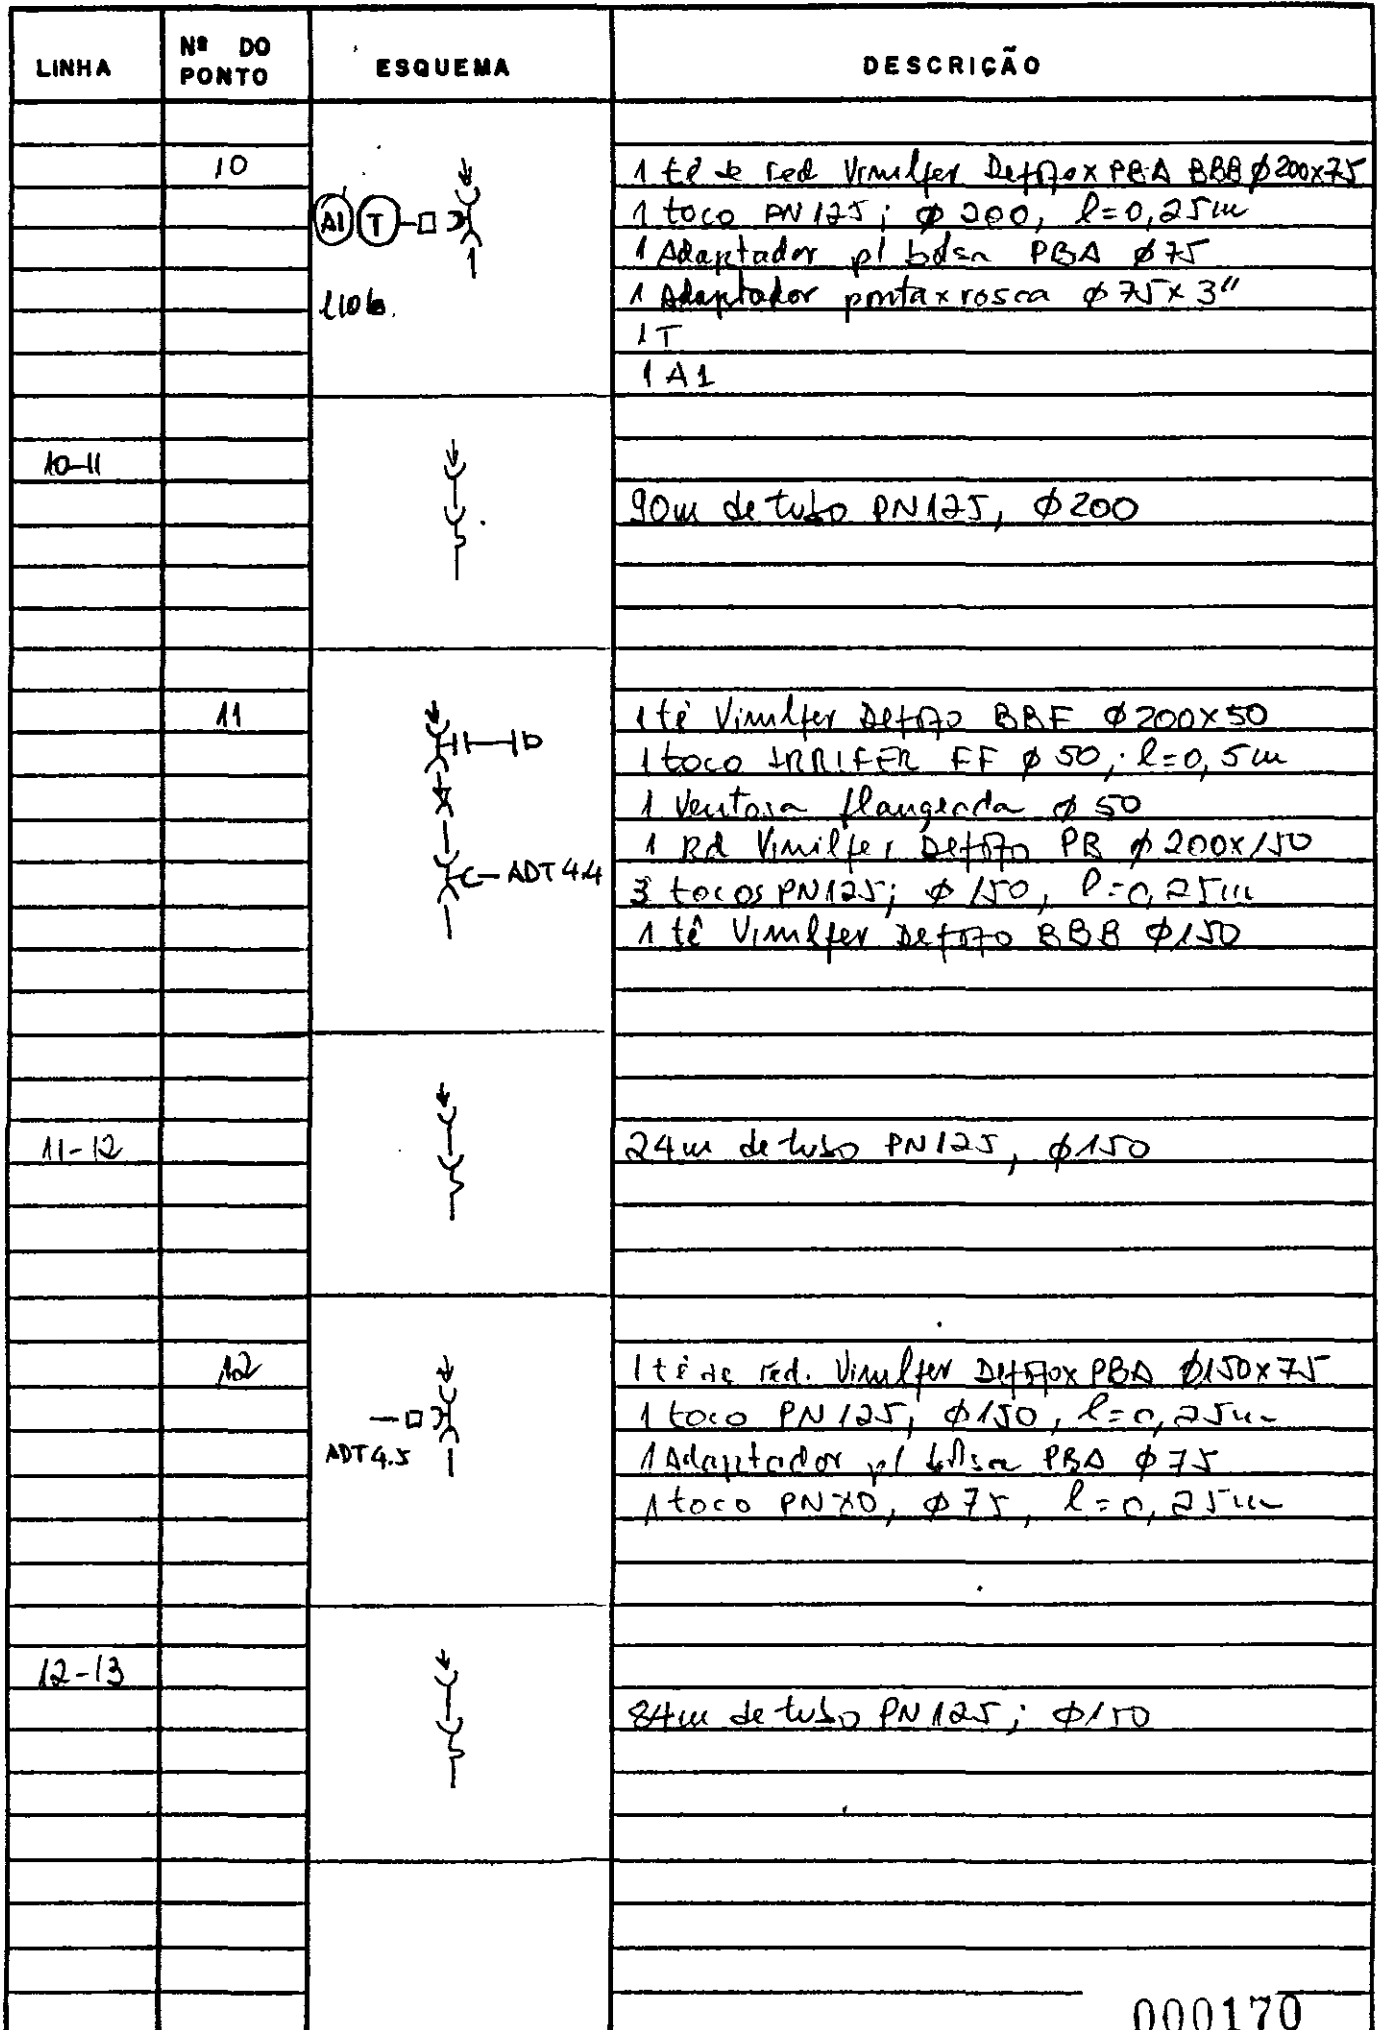 LINHA
Nº DO PONTO
ESQUEMA
DESCRIÇÃO
10
A1 T
110b.
1 tê de red Vinilfer Defofox PBA BBB ϕ200x75
1 toco PN125; ϕ 200, l=0,25m
1 Adaptador p/ bolsa PBA ϕ75
1 Adaptador pontaxrosca ϕ75x3"
1T
1 A1
10-11
90m de tubo PN125, ϕ200
11
ADT 4.4
1 tê Vinilfer Defofo BBF ϕ200x50
1 toco IRRIFER FF ϕ 50, l=0,5m
1 Ventosa flangeada ϕ 50
1 Rd Vinilfer Defofo PB ϕ 200x150
3 tocos PN125; ϕ 150, l=0,25m
1 tê Vinilfer Defofo BBB ϕ150
11-12
24m de tubo PN125, ϕ150
12
ADT 4.5
1 tê de red. Vinilfer Defofox PBA ϕ150x75
1 toco PN125, ϕ150, l=0,25m
1 Adaptador p/ bolsa PBA ϕ75
1 toco PN, ϕ75, l=0,25m
12-13
84m de tubo PN125; ϕ150
000170